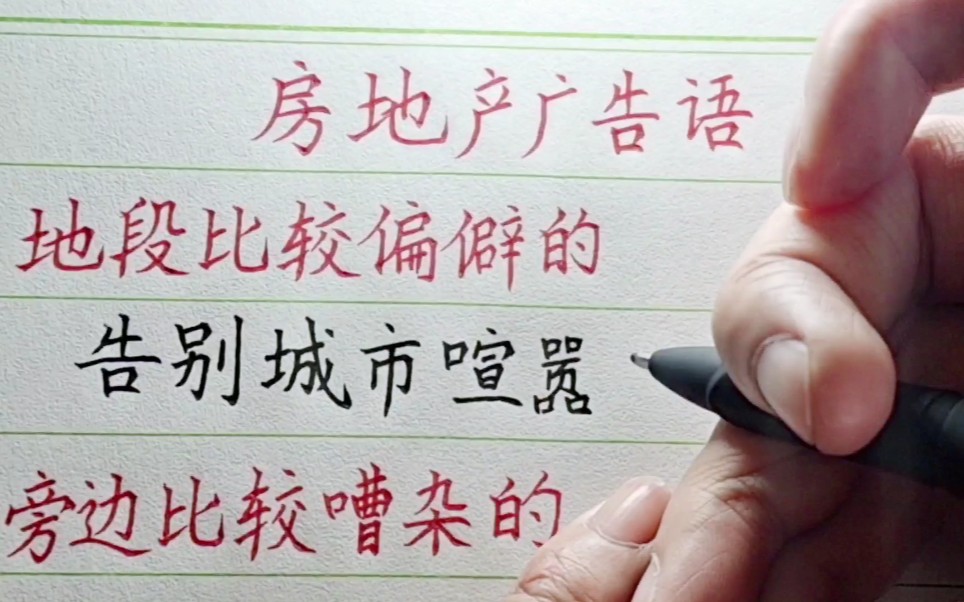 房地产广告语
地段比较偏僻的
告别城市喧嚣
旁边比较嘈杂的